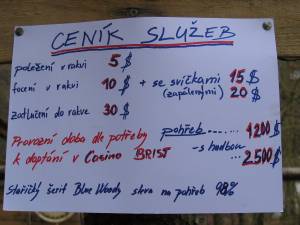 CENÍK SLUŽEB
položení v rakvi 5 $
focení v rakvi 10 $ + se svíčkami 15 $
(zapálenými) 20 $
zatlučení do rakve 30 $
Provozní doba dle potřeby
k doptání v Casino BRIST
pohřeb...... 1200 $
- s hudbou ... 2.500 $
Stařičký šerif Blue Woody sleva na pohřeb 98%